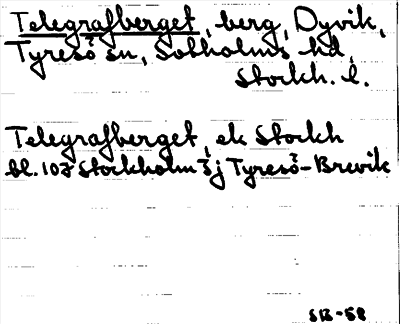 Telegrafberget, berg, Dyvik,
Tyresö sn, Sotholms hd,
Stockh. l.
Telegrafberget, ek Stockh
bl. 107 Stockholm Sj Tyresö-Brevik
SB-58